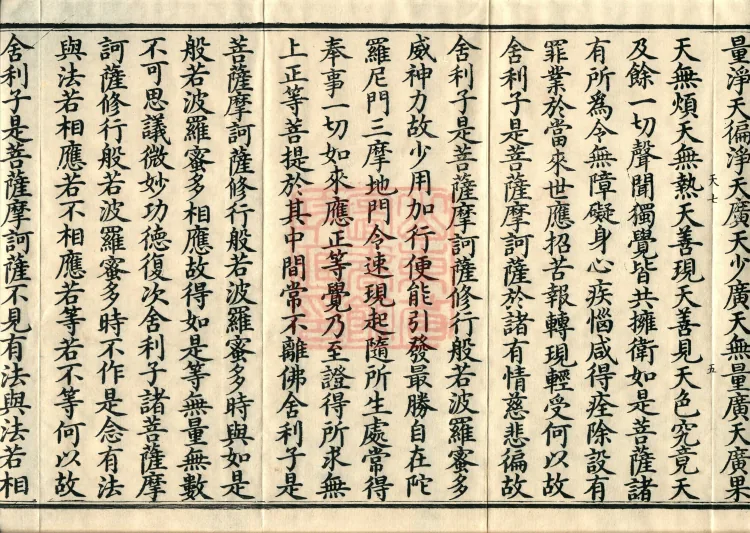 量淨天徧淨天廣天少廣天無量廣天廣果
天無煩天無熱天善現天善見天色究竟天
及餘一切聲聞獨覺皆共擁衛如是菩薩諸
有所為令無障礙身心疾惱咸得痊除設有
罪業於當來世應招苦報轉現輕受何以故
舍利子是菩薩摩訶薩於諸有情慈悲徧故
舍利子是菩薩摩訶薩修行般若波羅蜜多
威神力故少用加行便能引發最勝自在陀
羅尼門三摩地門令速現起隨所生處常得
奉事一切如來應正等覺乃至證得所求無
上正等菩提於其中間常不離佛舍利子是
菩薩摩訶薩修行般若波羅蜜多時與如是
般若波羅蜜多相應故得如是等無量無數
不可思議微妙功德復次舍利子諸菩薩摩
訶薩修行般若波羅蜜多時不作是念有法
與法若相應若不相應若等若不等何以故
舍利子是菩薩摩訶薩不見有法與法若相
天七
五